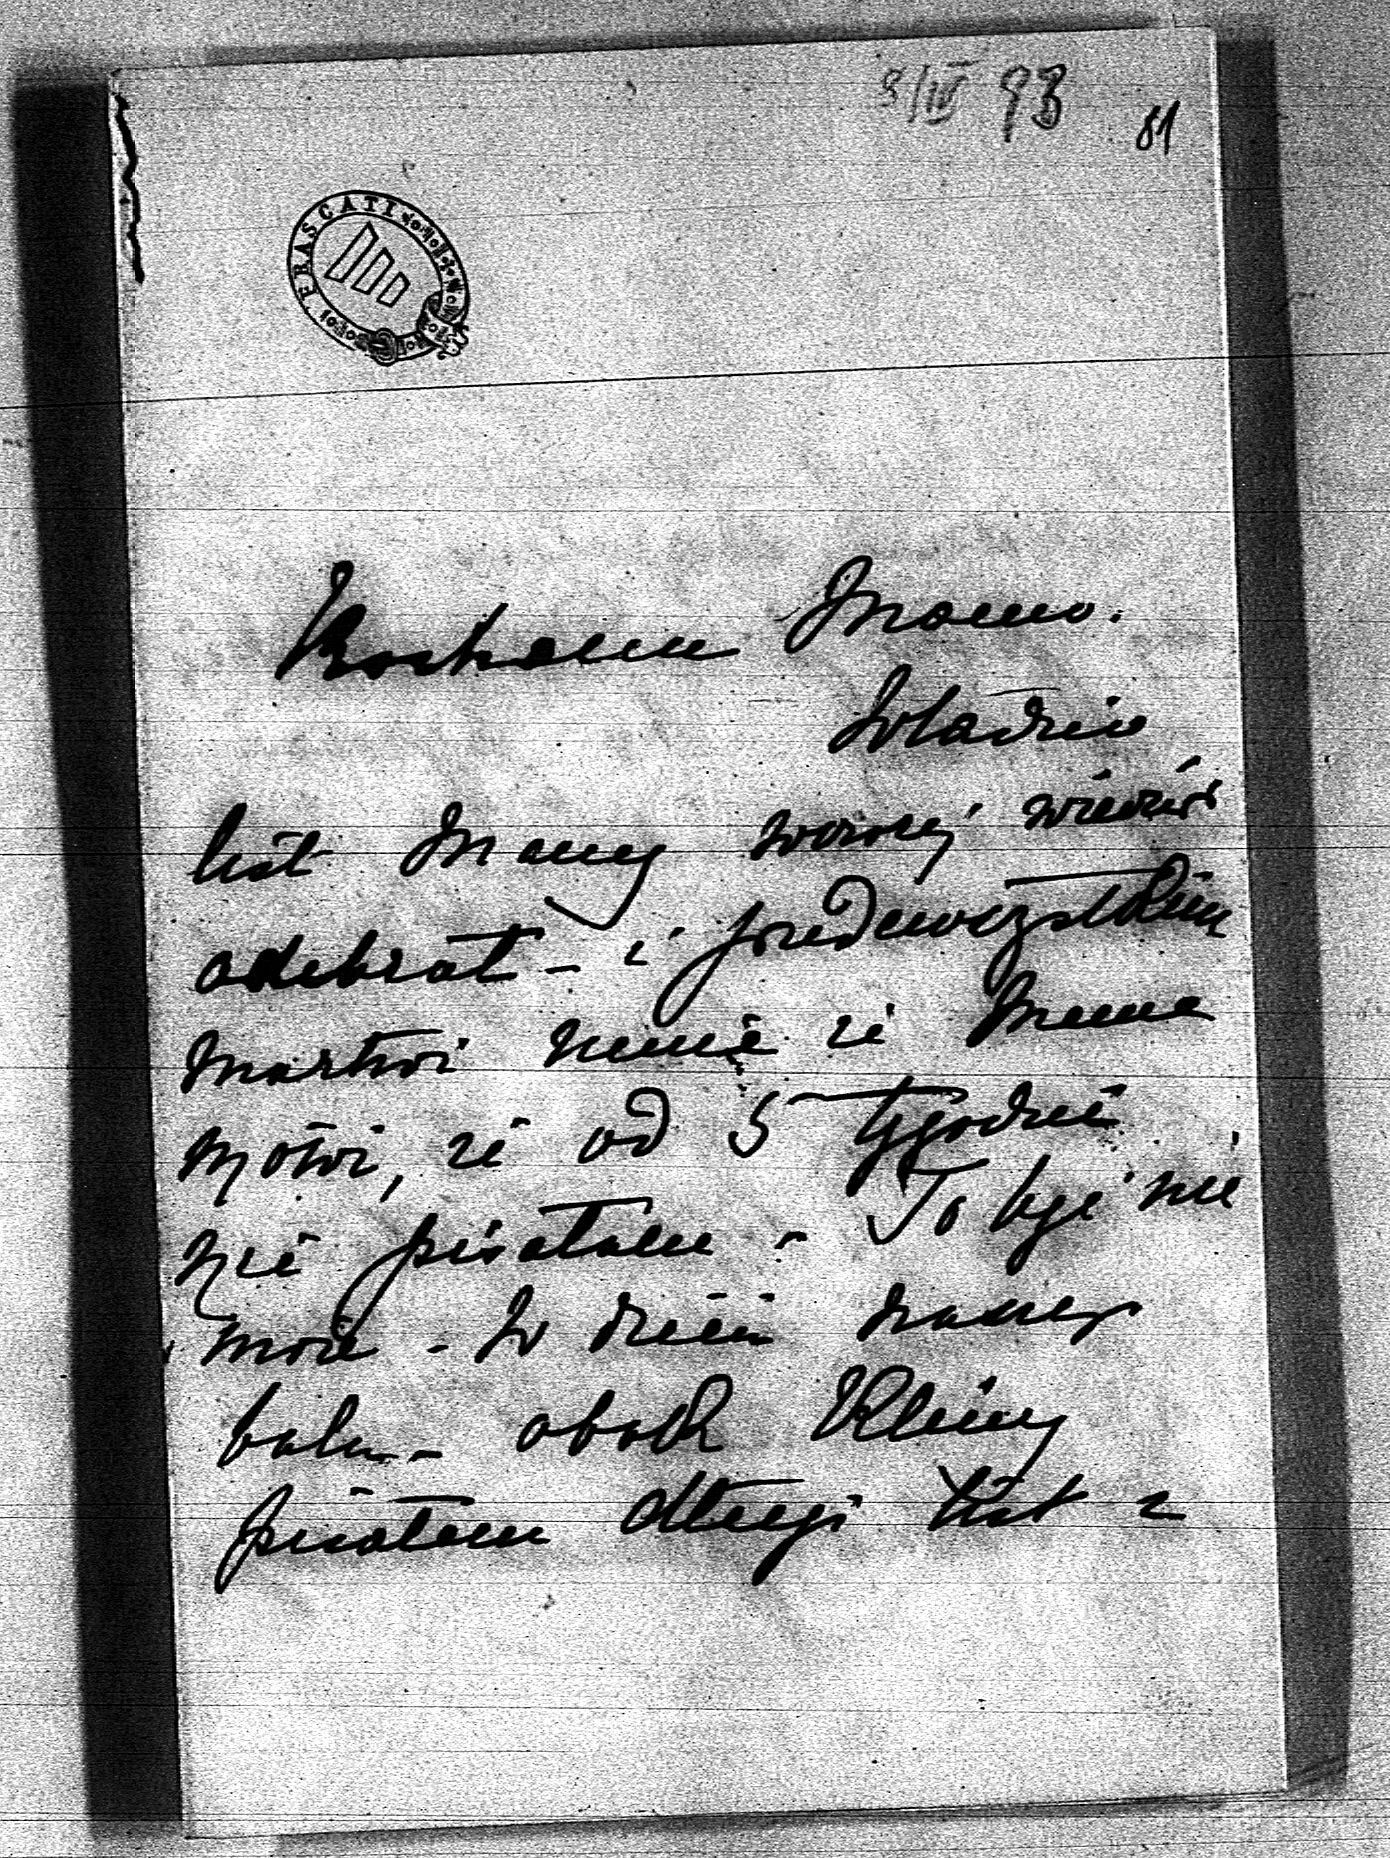 3/IV 93
81
FRASCATI
Kochana Mamo.
Władzio
list Mamy wczoraj wieczór
odebrał - i przedewszystkiem
martwi mnie że Mama
mówi, że od 5 tygodni
nie pisałam - To być nie
może - W dzień naszego
balu - obok Klimy
pisałam długi list z